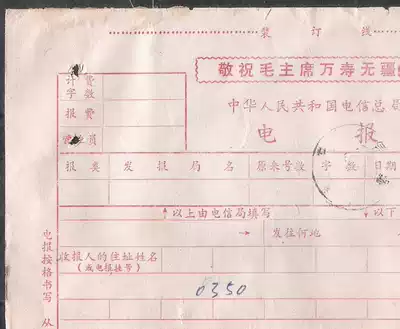 装 订 线
敬祝毛主席万寿无疆
计 费
字 数
报 费
员
中华人民共和国电信总局
电 报
报 类 发 报 局 名 原来号数 字 数 日期
↑以上由电信局填写 ↓以下
→ 发往何地
收报人的住址姓名
(或电报挂号)
0350
电报按格书写 从